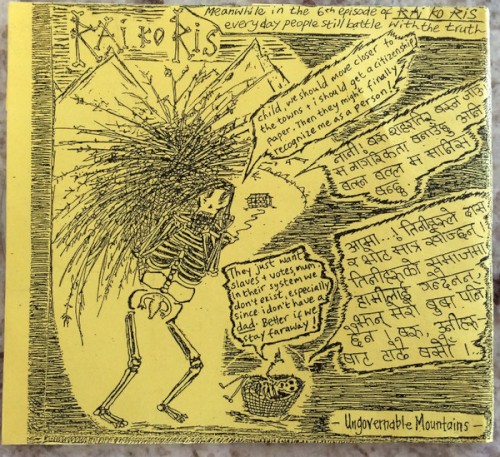 RAi ko RiS
Meanwhile in the 6th episode of RAi KO RiS
everyday people still battle with the truth
child, we should move closer to
the towns & i should get a citizenship
paper. Then they might finally
recognize me as a person!
नानी! बरु शहरतिर बस्न जाऊँ
म नागरिकता बनाउँछु अनि
बल्ल बल्ल म मानिस
They just want
slaves & votes, mum.
In their system we
don't exist, especially
since i don't have a
dad. Better if we
stay faraway!
आमा...! तिनीहरूले दास
र भोट मात्र खोज्छन्।
तिनीहरूको समाजमा
हामीलाई गन्दैनन्,
मेरो बुबा पनि
छैन बरु, उनीहरू
बाट टाढै बसौं!..
- Ungovernable Mountains -